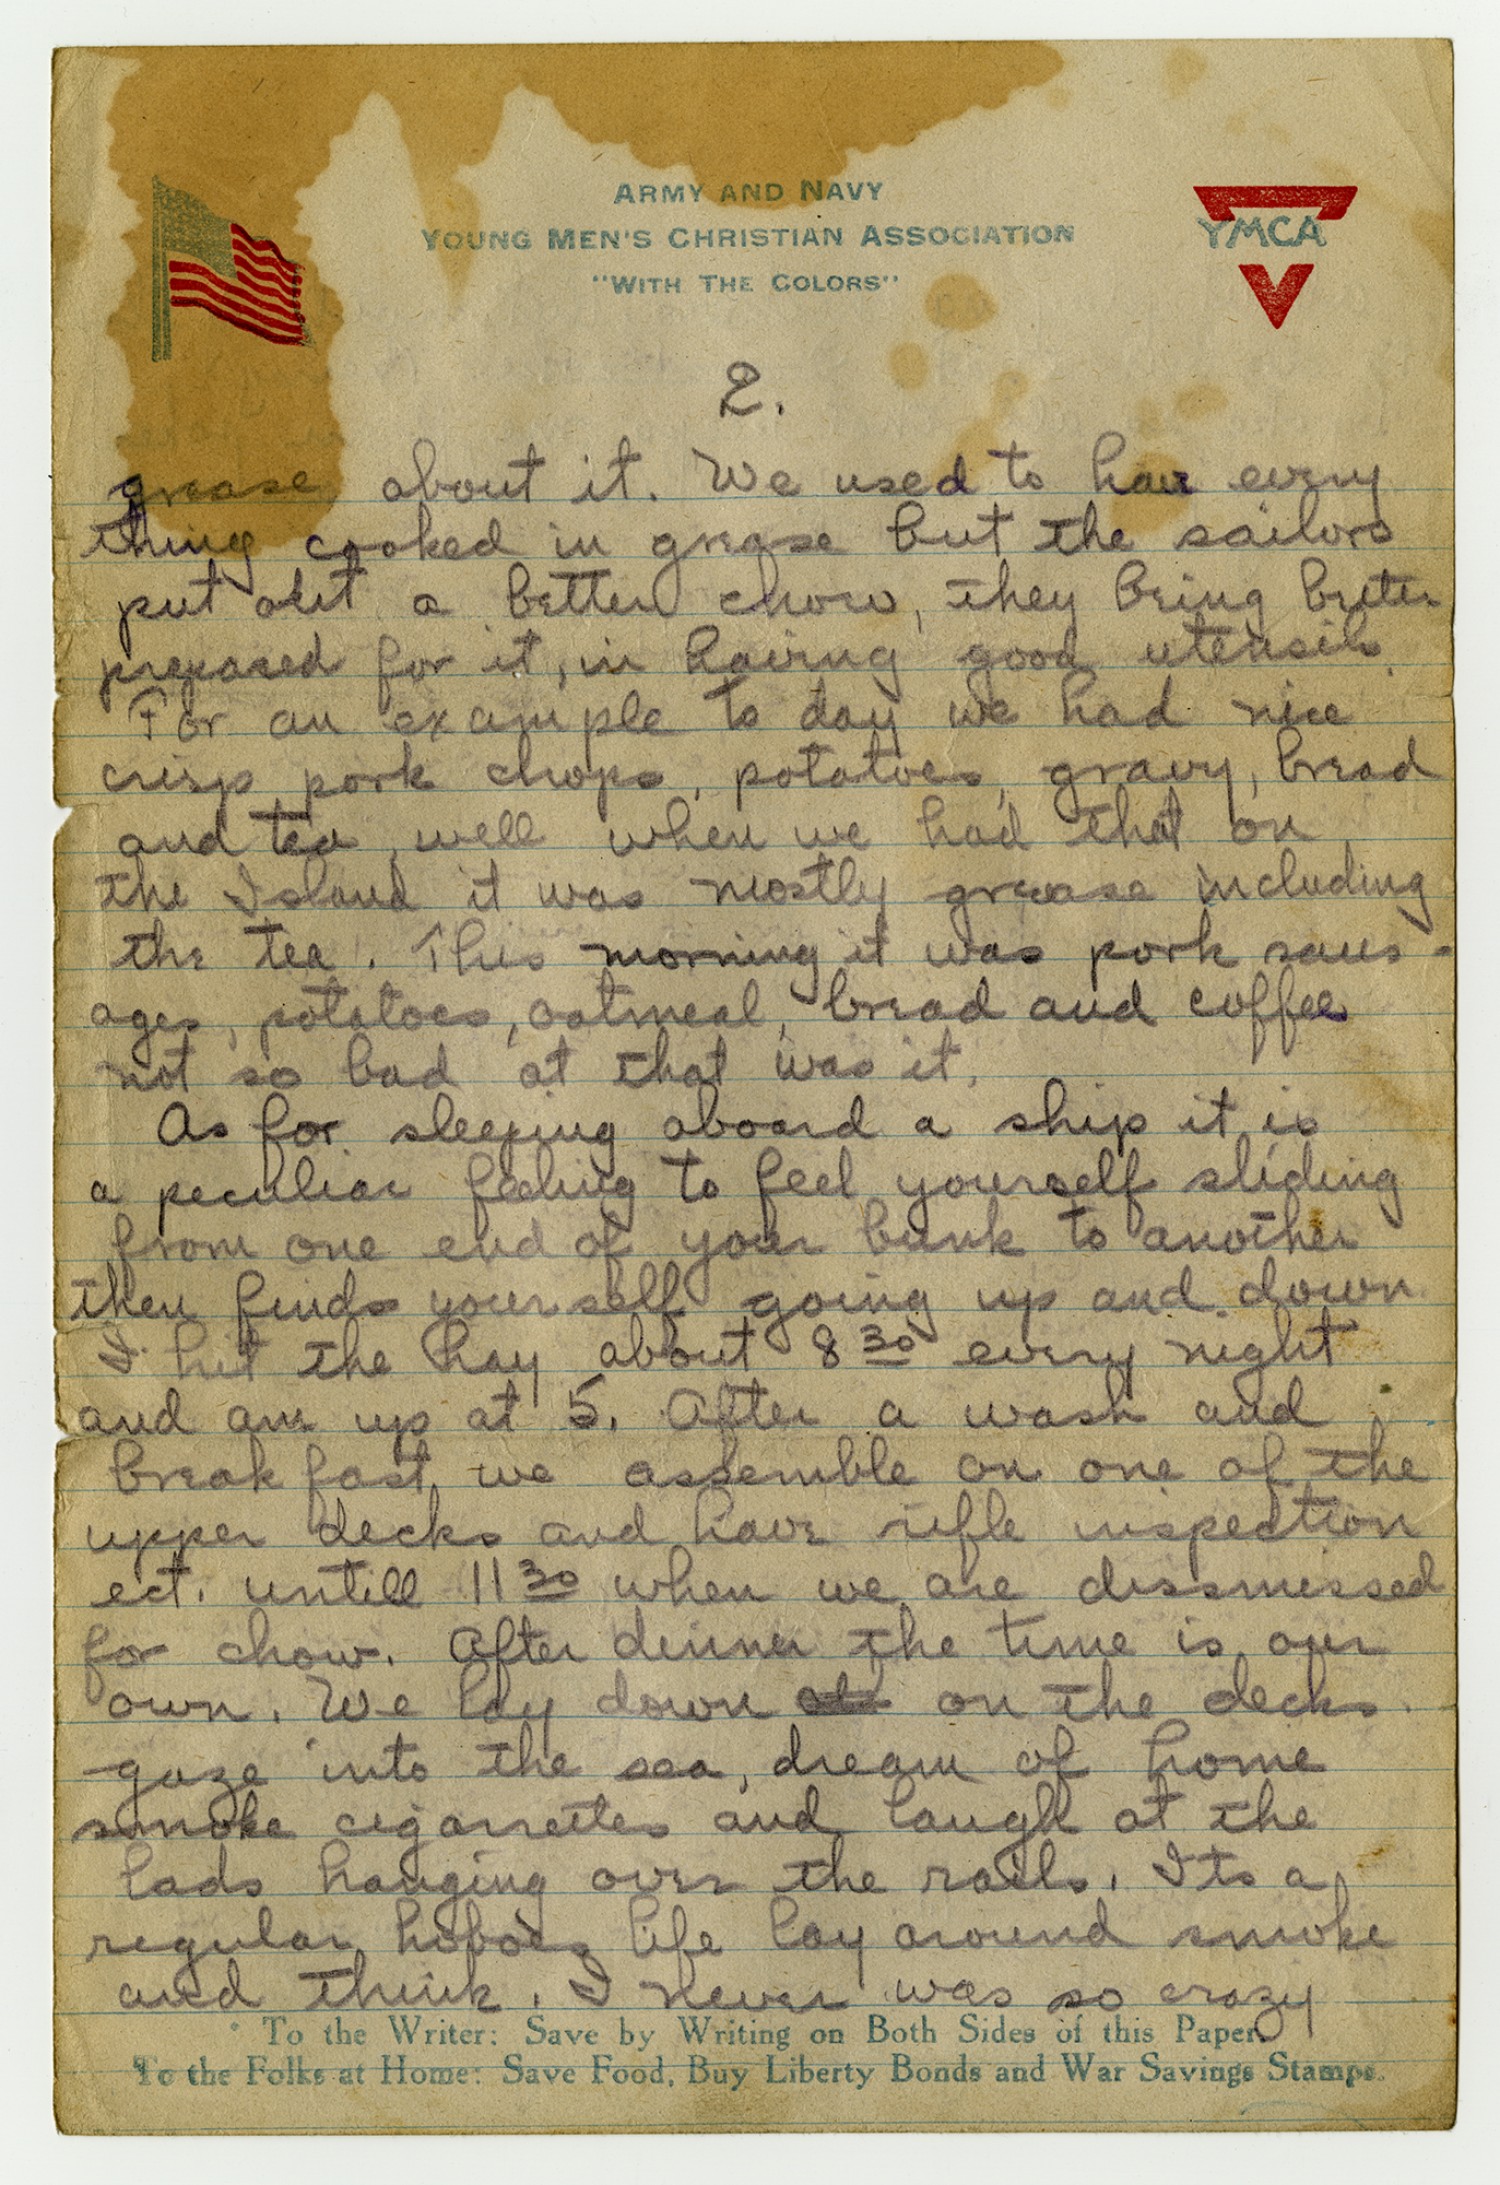 ARMY AND NAVY
YOUNG MEN'S CHRISTIAN ASSOCIATION
"WITH THE COLORS"
YMCA
2.
grease about it. We used to have every
thing cooked in grease but the sailors
put out a better chow, they being better
prepared for it, in having good utensils.
For an example to day we had nice
crisp pork chops, potatoes, gravy, bread
and tea, well when we had that on
the Island it was mostly grease including
the tea. This morning it was pork saus-
ages, potatoes, oatmeal, bread and coffee
not so bad at that was it.
As for sleeping aboard a ship it is
a peculiar feeling to feel yourself sliding
from one end of your bunk to another
then finds yourself going up and down
I hit the hay about 8 30 every night
and am up at 5. After a wash and
breakfast we assemble on one of the
upper decks and have rifle inspection
ect. untill 11 30 when we are dissmissed
for chow. After dinner the time is our
own. We lay down on the decks
gaze into the sea, dream of home
smoke cigarrettes and laugh at the
lads hanging over the rails. Its a
regular hoboes life lay around smoke
and think. I never was so crazy
To the Writer: Save by Writing on Both Sides of this Paper.
To the Folks at Home: Save Food, Buy Liberty Bonds and War Savings Stamps.